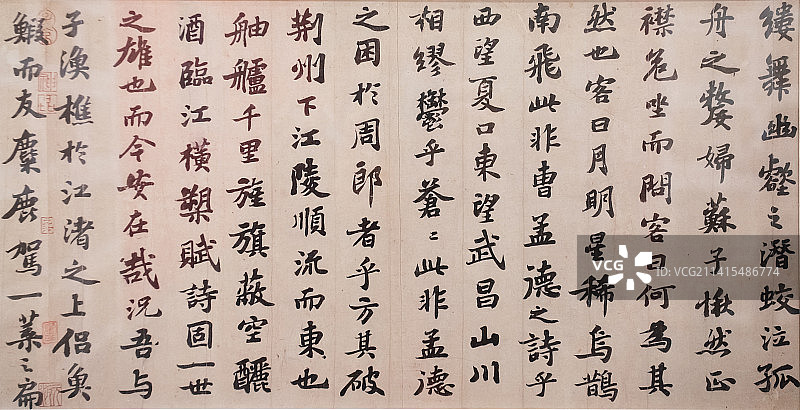 縷舞幽壑之潛蛟泣孤
舟之嫠婦蘇子愀然正
襟危坐而問客曰何為其
然也客曰月明星稀烏鵲
南飛此非曹孟德之詩乎
西望夏口東望武昌山川
相繆鬱乎蒼〻此非孟德
之困於周郎者乎方其破
荊州下江陵順流而東也
舳艫千里旌旗蔽空釃
酒臨江橫槊賦詩固一世
之雄也而今安在哉況吾與
子漁樵於江渚之上侶魚
鰕而友麋鹿駕一葉之扁
VCG
VCG.COM
ID:VCG211415486774